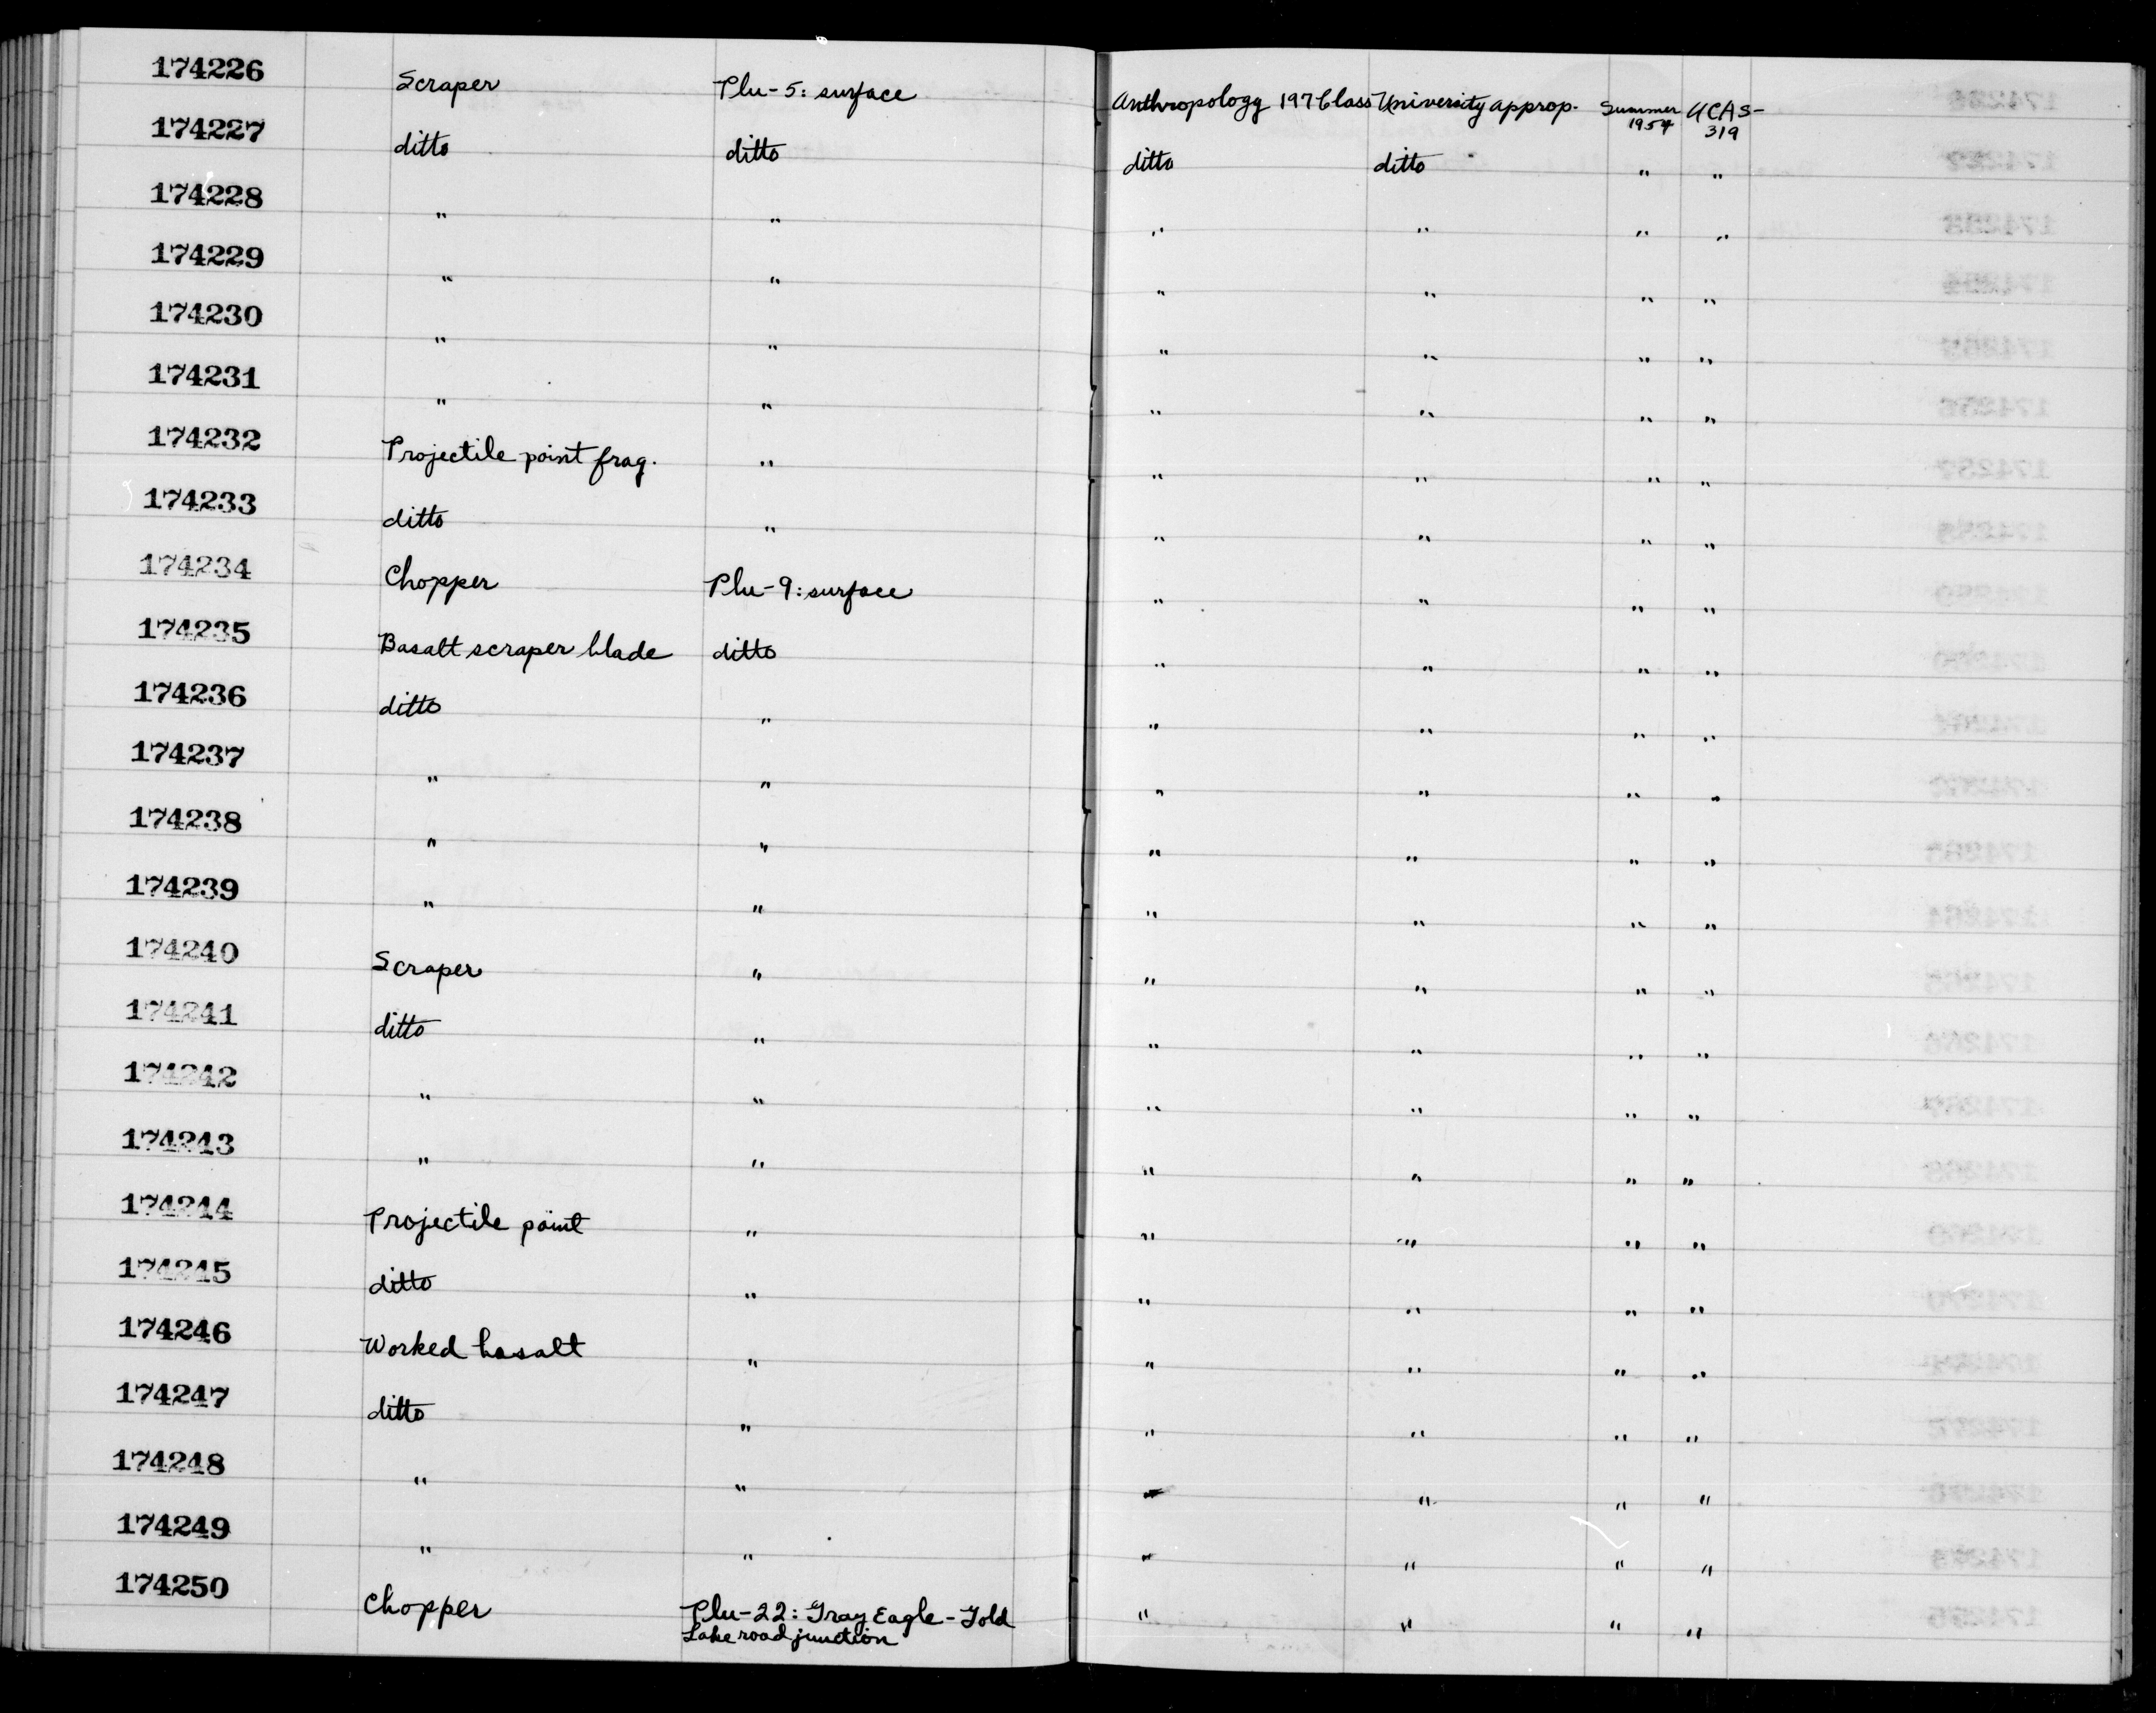 174226 Scraper Plu-5: surface Anthropology 197 Class University approp. Summer 1954 UCAS-319
174227 ditto ditto ditto ditto " "
174228 " " " " " "
174229 " " " " " "
174230 " " " " " "
174231 " " " " " "
174232 Projectile point frag. " " " " "
174233 ditto " " " " "
174234 Chopper Plu-9: surface " " " "
174235 Basalt scraper blade ditto " " " "
174236 ditto " " " " "
174237 " " " " " "
174238 " " " " " "
174239 " " " " " "
174240 Scraper " " " " "
174241 ditto " " " " "
174242 " " " " " "
174243 " " " " " "
174244 Projectile point " " " " "
174245 ditto " " " " "
174246 Worked basalt " " " " "
174247 ditto " " " " "
174248 " " " " " "
174249 " " " " " "
174250 Chopper Plu-22: Gray Eagle - Gold " " " "
Lake road junction